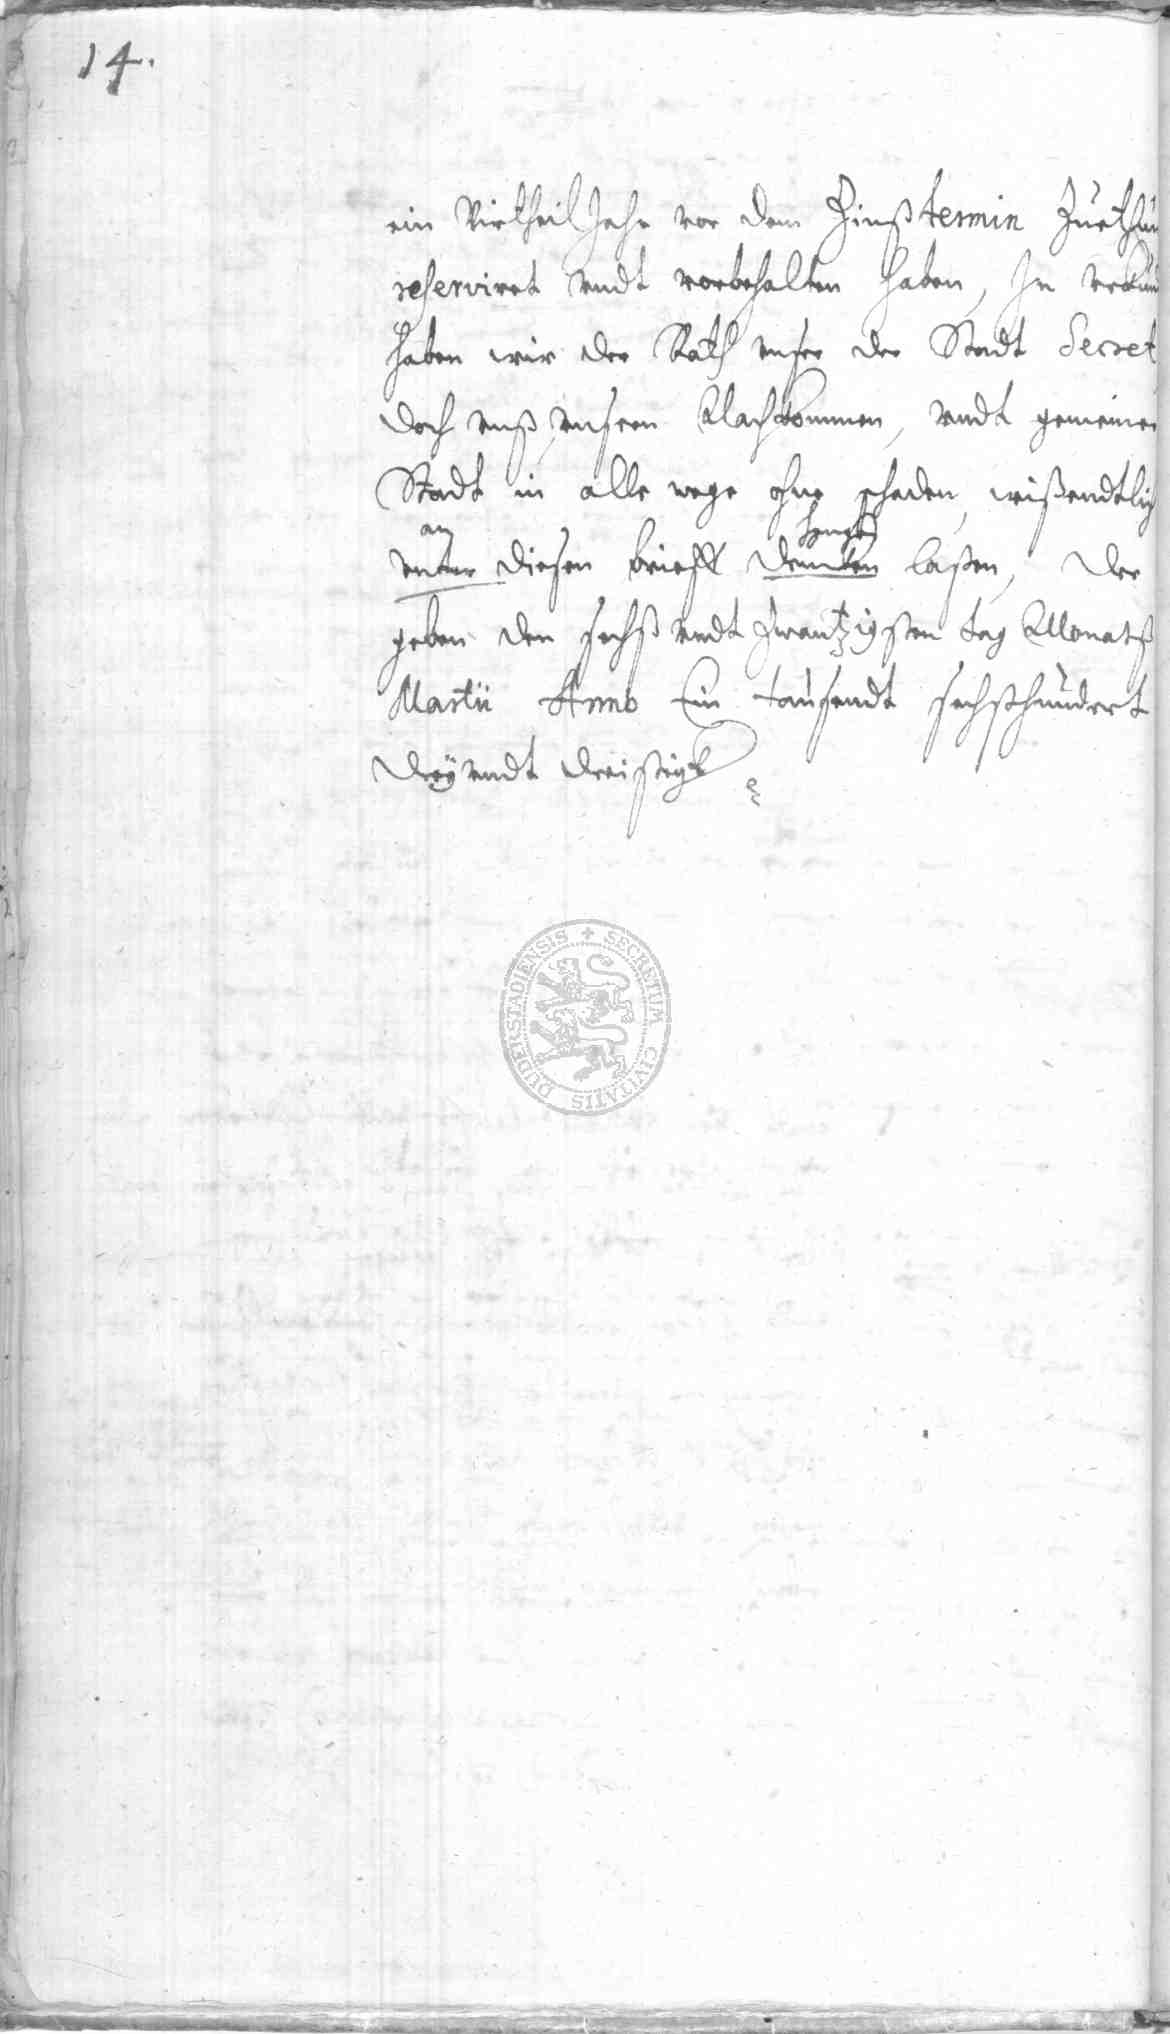 14.
ein Virtheil Jahr vor dem Zinß termin Zuethun
reserviret undt vorbehalten haben, In urkun
haben wir der Rath unser der Stadt Secret
doch unß, unsern Nachkommen, undt gemeiner
Stadt in alle wege ohne schaden, wißendtlich
an hengen
unter diesen brieff drucken laßen, Der
geben den sechß undt zwantzigsten tag Monatß
Martii Anno Ein tausendt sechßhundert
dreÿ undt dreissigk
DUDERSTADIENSIS + SECRETUM CIVITATIS